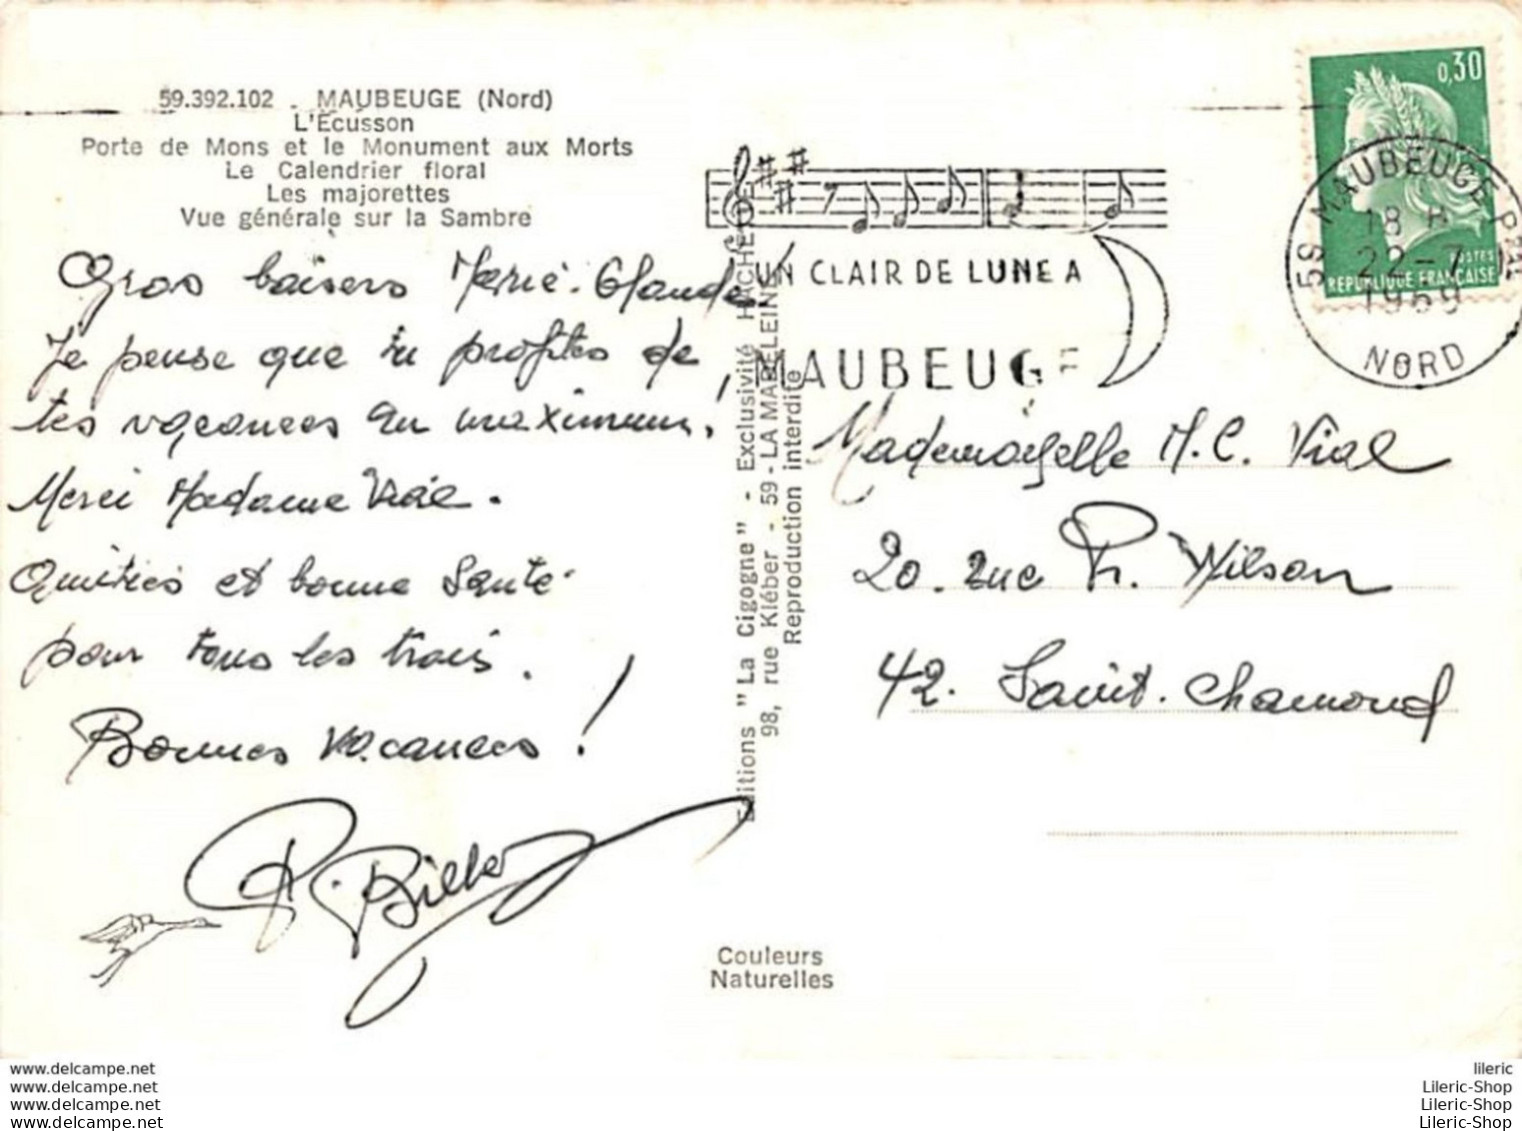 59.392.102 . MAUBEUGE (Nord)
L'Ecusson
Porte de Mons et le Monument aux Morts
Le Calendrier floral
Les majorettes
Vue générale sur la Sambre
Gros baisers Marie-Claude.
Je pense que tu profites de
tes vacances au maximum !
Merci Madame Vial.
Amitiés et bonne santé
pour tous les trois.
Bonnes vacances !
Editions "La Cigogne" - Exclusivité HACHETTE
98, rue Kléber - 59 - LA MADELEINE
Reproduction interdite
Couleurs
Naturelles
UN CLAIR DE LUNE A
MAUBEUGE
0,30
POSTES
REPUBLIQUE FRANÇAISE
59 MAUBEUGE PPAL
18 H
22-7
1969
NORD
Mademoiselle M.C. Vial
20. rue P. Wilson
42. Saint. Chamond
www.delcampe.net
www.delcampe.net
www.delcampe.net
www.delcampe.net
lileric
Lileric-Shop
Lileric-Shop
Lileric-Shop